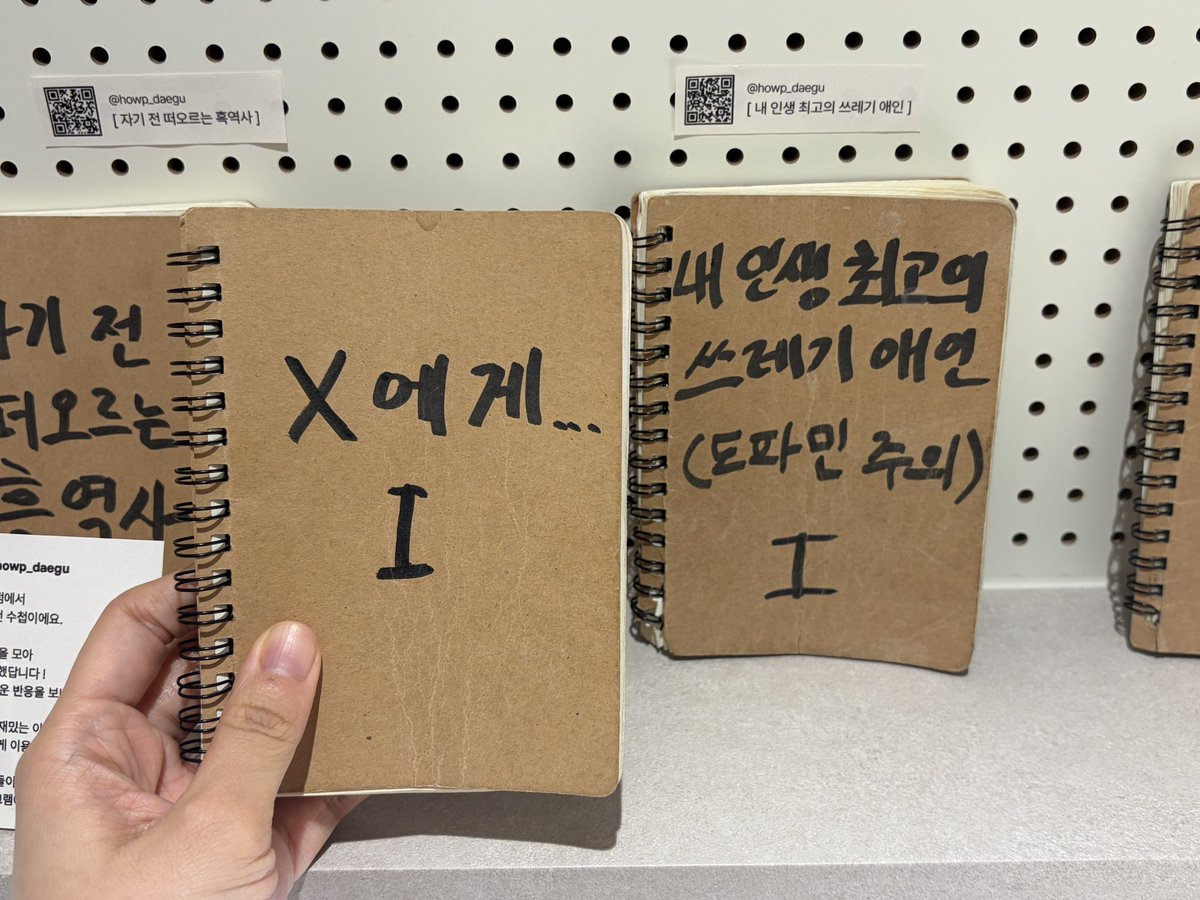 @howp_daegu
[ 자기 전 떠오르는 흑역사 ]
@howp_daegu
[ 내 인생 최고의 쓰레기 애인 ]
자기 전
떠오르는
흑역사
X에게...
I
내 인생 최고의
쓰레기 애인
(도파민 주의)
I
howp_daegu
점에서
수첩이에요.
을 모아
했답니다 !
운 반응을
재밌는
게